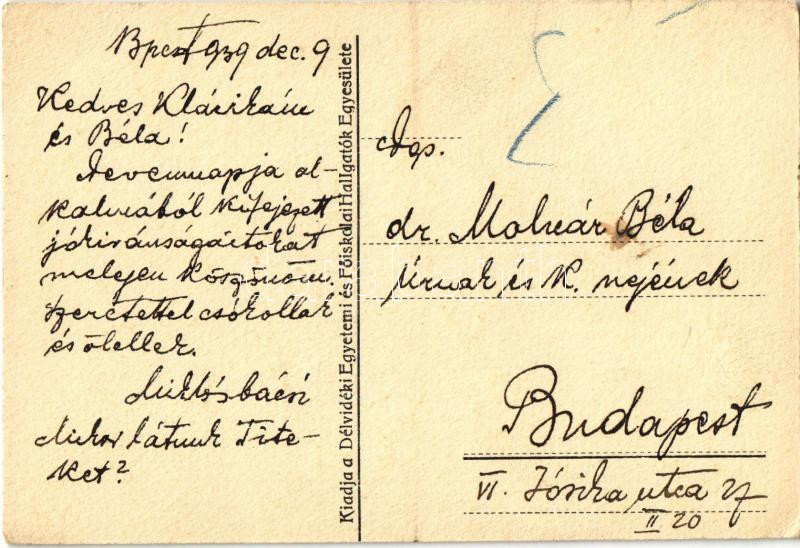 Bpest 939 dec. 9
Kedves Klárikám
és Béla!
Nevemnapja al-
kalmából kifejezett
jókivánságaitokat
melyen köszönöm.
Szeretettel csókollak
és ölellek.
Miklósbácsi
Mikor látunk Tite-
ket?
Kiadja a Délvidéki Egyetemi és Főiskolai Hallgatók Egyesülete
Ngs.
dr. Molnár Béla
Úrnak és K. nejének
Budapest
VI. Jósika utca 27
II 20